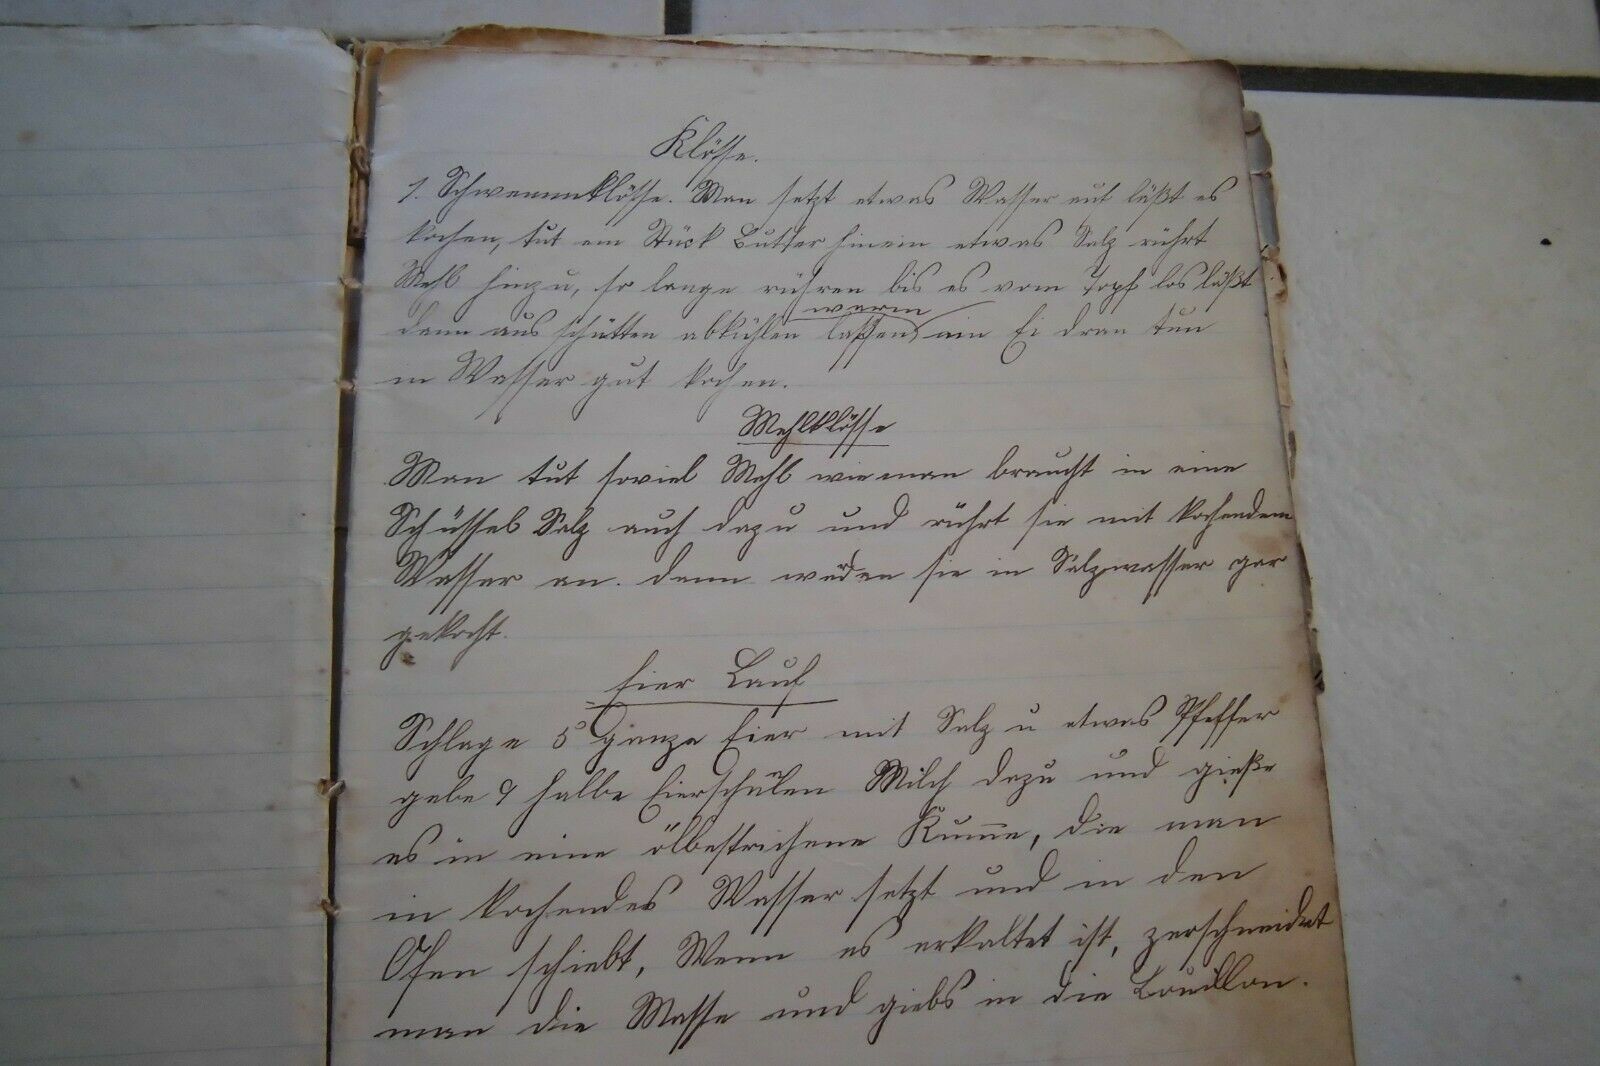 Klösse.
1. Schwemmklösse. Man setzt etwas Wasser auf läßt es
kochen, tut ein Stück Butter hinein etwas Salz rührt
Mehl hinzu, so lange rühren bis es vom Topf los läßt
warm
dann aus schütten abkühlen laßen, ein Ei dran tun
in Wasser gut kochen.
Mehlklösse
Man tut soviel Mehl wie man braucht in eine
Schüssel Salz auch dazu und rührt sie mit kochendem
Wasser an. dann werden sie in Salzwasser gar
gekocht.
Eier Lauf
Schlage 5 ganze Eier mit Salz u etwas Pfeffer
gebe 9 halbe Eierschalen Milch dazu und gieße
es in eine ölbestrichene Kumme, die man
in kochendes Wasser setzt und in den
Ofen schiebt, Wenn es erkaltet ist, zerschneidet
man die Masse und giebs in die Bouillon.